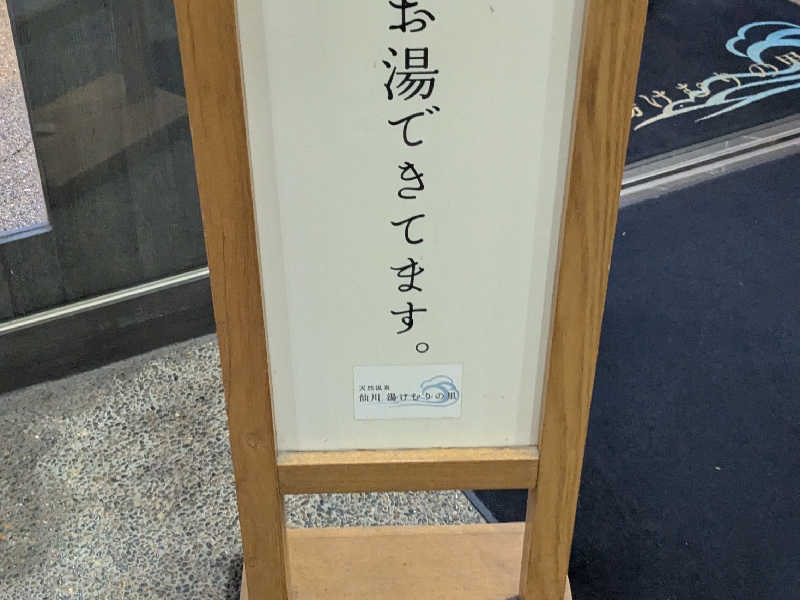 お湯できてます。
天然温泉
仙川 湯けむりの里
湯けむりの里